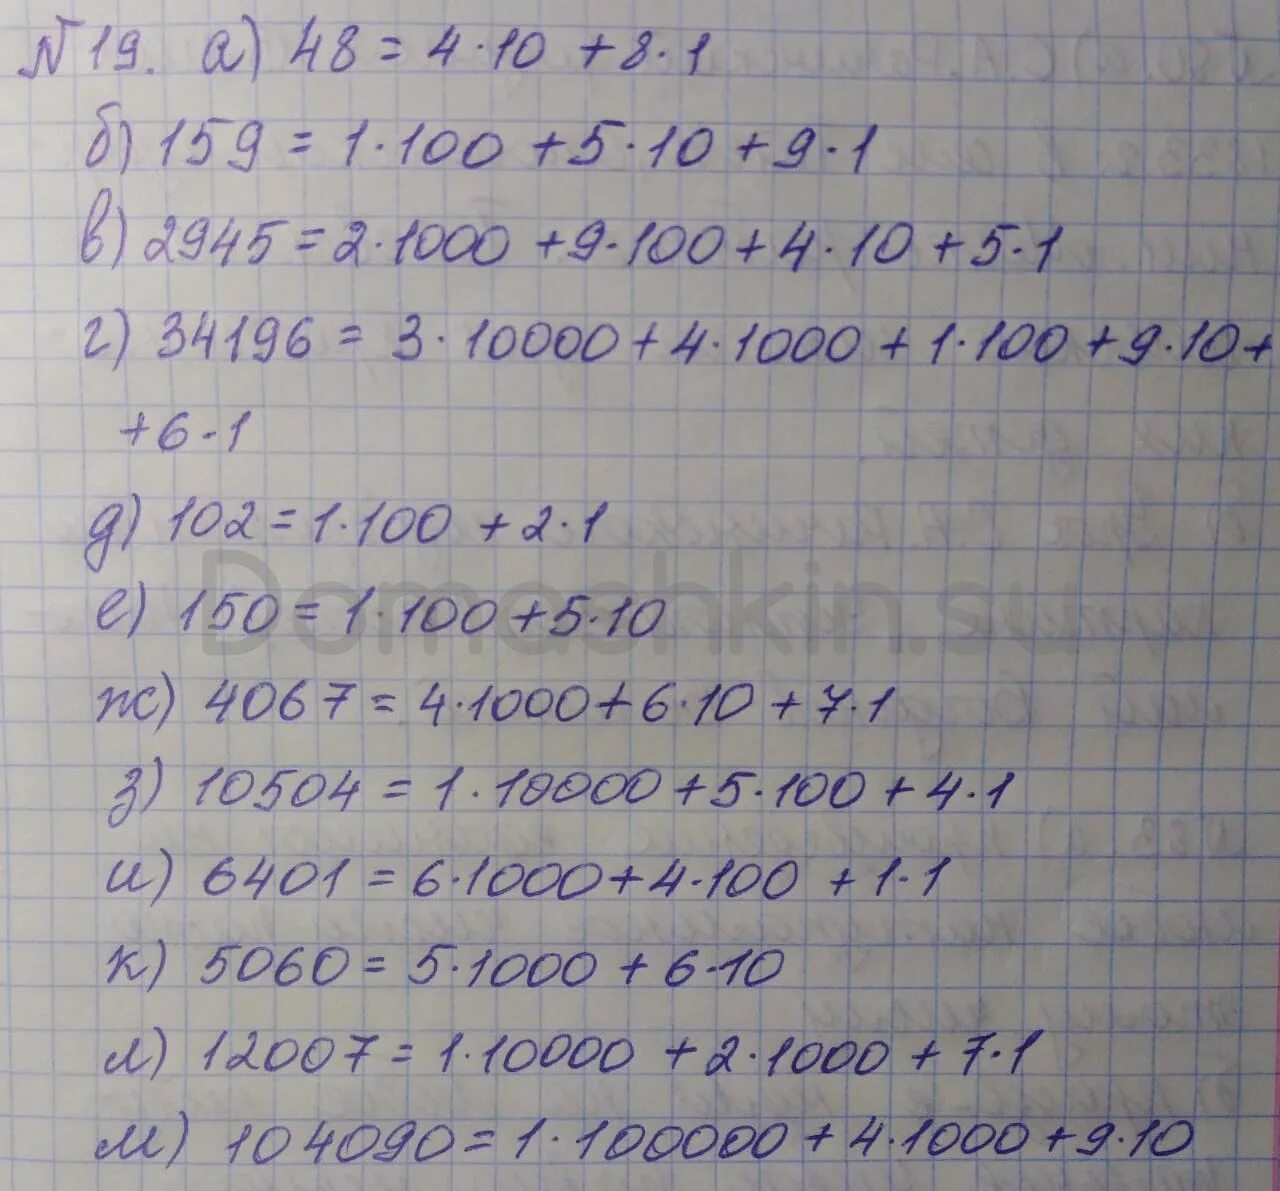 №19. а) 48 = 4·10 + 8·1
б) 159 = 1·100 + 5·10 + 9·1
в) 2945 = 2·1000 + 9·100 + 4·10 + 5·1
г) 34196 = 3·10000 + 4·1000 + 1·100 + 9·10 +
+ 6·1
д) 102 = 1·100 + 2·1
Domashkin.su
е) 150 = 1·100 + 5·10
ж) 4067 = 4·1000 + 6·10 + 7·1
з) 10504 = 1·10000 + 5·100 + 4·1
и) 6401 = 6·1000 + 4·100 + 1·1
к) 5060 = 5·1000 + 6·10
л) 12007 = 1·10000 + 2·1000 + 7·1
м) 104090 = 1·100000 + 4·1000 + 9·10